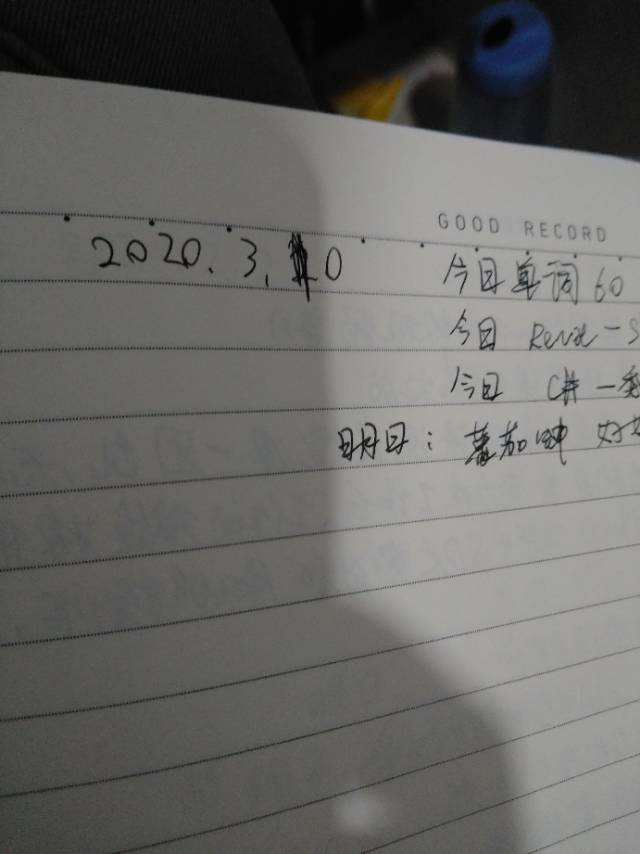 GOOD RECORD
2020.3.10 今日单词60
今日
今日 C# 一
明日： 蕃茄钟 好